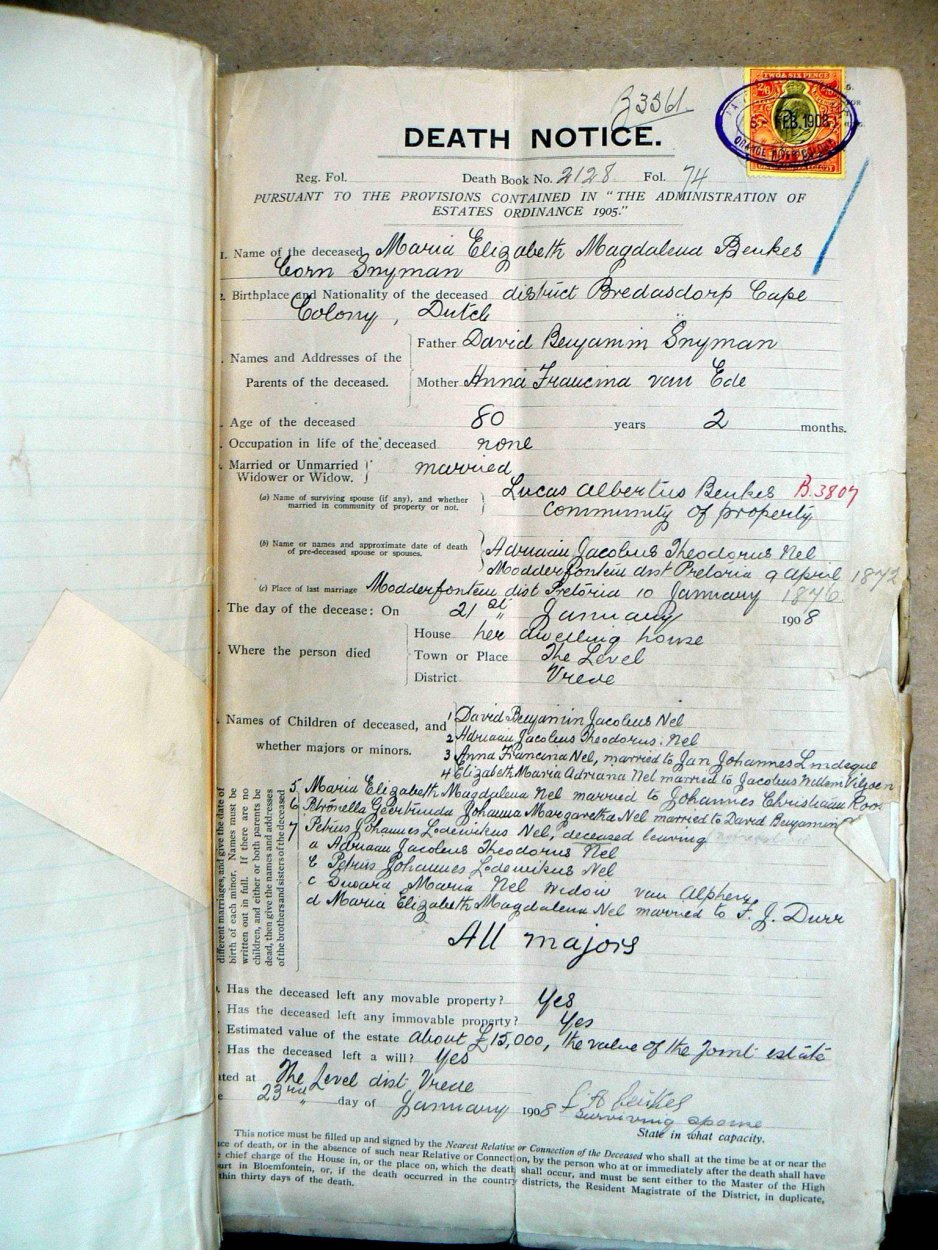 B 3361.
TWO & SIX PENCE
2/6
FEB. 1908
DEATH NOTICE.
Reg. Fol. Death Book No. 2128 Fol. 74
PURSUANT TO THE PROVISIONS CONTAINED IN "THE ADMINISTRATION OF
ESTATES ORDINANCE 1905."
1. Name of the deceased Maria Elizabeth Magdalena Beukes
born Snyman
2. Birthplace and Nationality of the deceased district Bredasdorp Cape
Colony, Dutch
Names and Addresses of the
Parents of the deceased.
Father David Benjamin Snyman
Mother Anna Francina van Ede
Age of the deceased 80 years 2 months.
Occupation in life of the deceased none
Married or Unmarried married
Widower or Widow.
(a) Name of surviving spouse (if any), and whether
married in community of property or not.
Lucas Albertus Beukes B.3807
Community of property
(b) Name or names and approximate date of death
of pre-deceased spouse or spouses.
Adriaan Jacobus Theodorus Nel
Modderfontein dist Pretoria 9 April 1872
(c) Place of last marriage Modderfontein dist Pretoria 10 January 1876
The day of the decease: On 21st January 1908
Where the person died
House her dwelling house
Town or Place The Level
District Vrede
Names of Children of deceased, and
whether majors or minors.
1 David Benjamin Jacobus Nel
2 Adriaan Jacobus Theodorus Nel
3 Anna Francina Nel, married to Jan Johannes Lindeque
4 Elizabeth Maria Adriana Nel married to Jacobus Willem Viljoen
5. Maria Elizabeth Magdalena Nel married to Johannes Christiaan Roos
6. Petronella Geertruida Johanna Margaretha Nel married to David Benjamin
7 Petrus Johannes Lodewikus Nel, deceased leaving
a Adriaan Jacobus Theodorus Nel
b Petrus Johannes Lodewikus Nel
c Susara Maria Nel Widow van Alphen
d Maria Elizabeth Magdalena Nel married to F. J. Durr
All majors
different marriages, and give the date of
birth of each minor. Names must be
written out in full. If there are no
children, and either or both parents be
dead, then give the names and addresses
of the brothers and sisters of the deceased
Has the deceased left any movable property? Yes
Has the deceased left any immovable property? Yes
Estimated value of the estate about £15,000, the value of the joint estate
Has the deceased left a will? Yes
ted at The Level dist Vrede
23rd day of January 1908 L A Beukes
Surviving spouse
State in what capacity.
This notice must be filled up and signed by the Nearest Relative or Connection of the Deceased who shall at the time be at or near the
ce of death, or in the absence of such near Relative or Connection, by the person who at or immediately after the death shall have
chief charge of the House in, or the place on, which the death shall occur, and must be sent either to the Master of the High
urt in Bloemfontein, or, if the death occurred in the country districts, the Resident Magistrate of the District, in duplicate,
thin thirty days of the death.